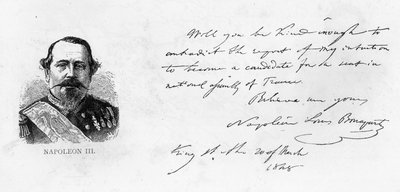 NAPOLEON III.
Will you be kind enough to
contradict the report of my intention
to become a candidate for a seat in
national assembly of France
Believe me yours
Napoléon Louis Bonaparte
King St. the 20 of March
1848